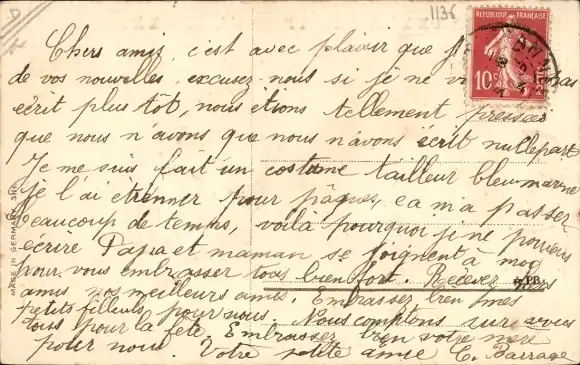 D
1136
RÉPUBLIQUE FRANÇAISE
10c
Chers amis, c'est avec plaisir que
de vos nouvelles, excusez-nous si je ne pas
écrit plus tôt, nous étions tellement pressées
que nous n'avons que nous n'avons écrit nullepart
Je me suis fait un costume tailleur bleu marine
je l'ai étrenner pour pâques, ça m'a passer
beaucoup de temps, voilà pourquoi je ne pouvais
écrire Papa et maman se joignent à moi
pour vous embrasser tous bien fort. Recevez mes
amis nos meilleurs amis. Embrassez bien mes
petits filleuls pour nous. Nous comptons sur vous
tous pour la fête. Embrassez bien votre mère
pour nous. Votre petite amie C.
MADE IN GERMANY